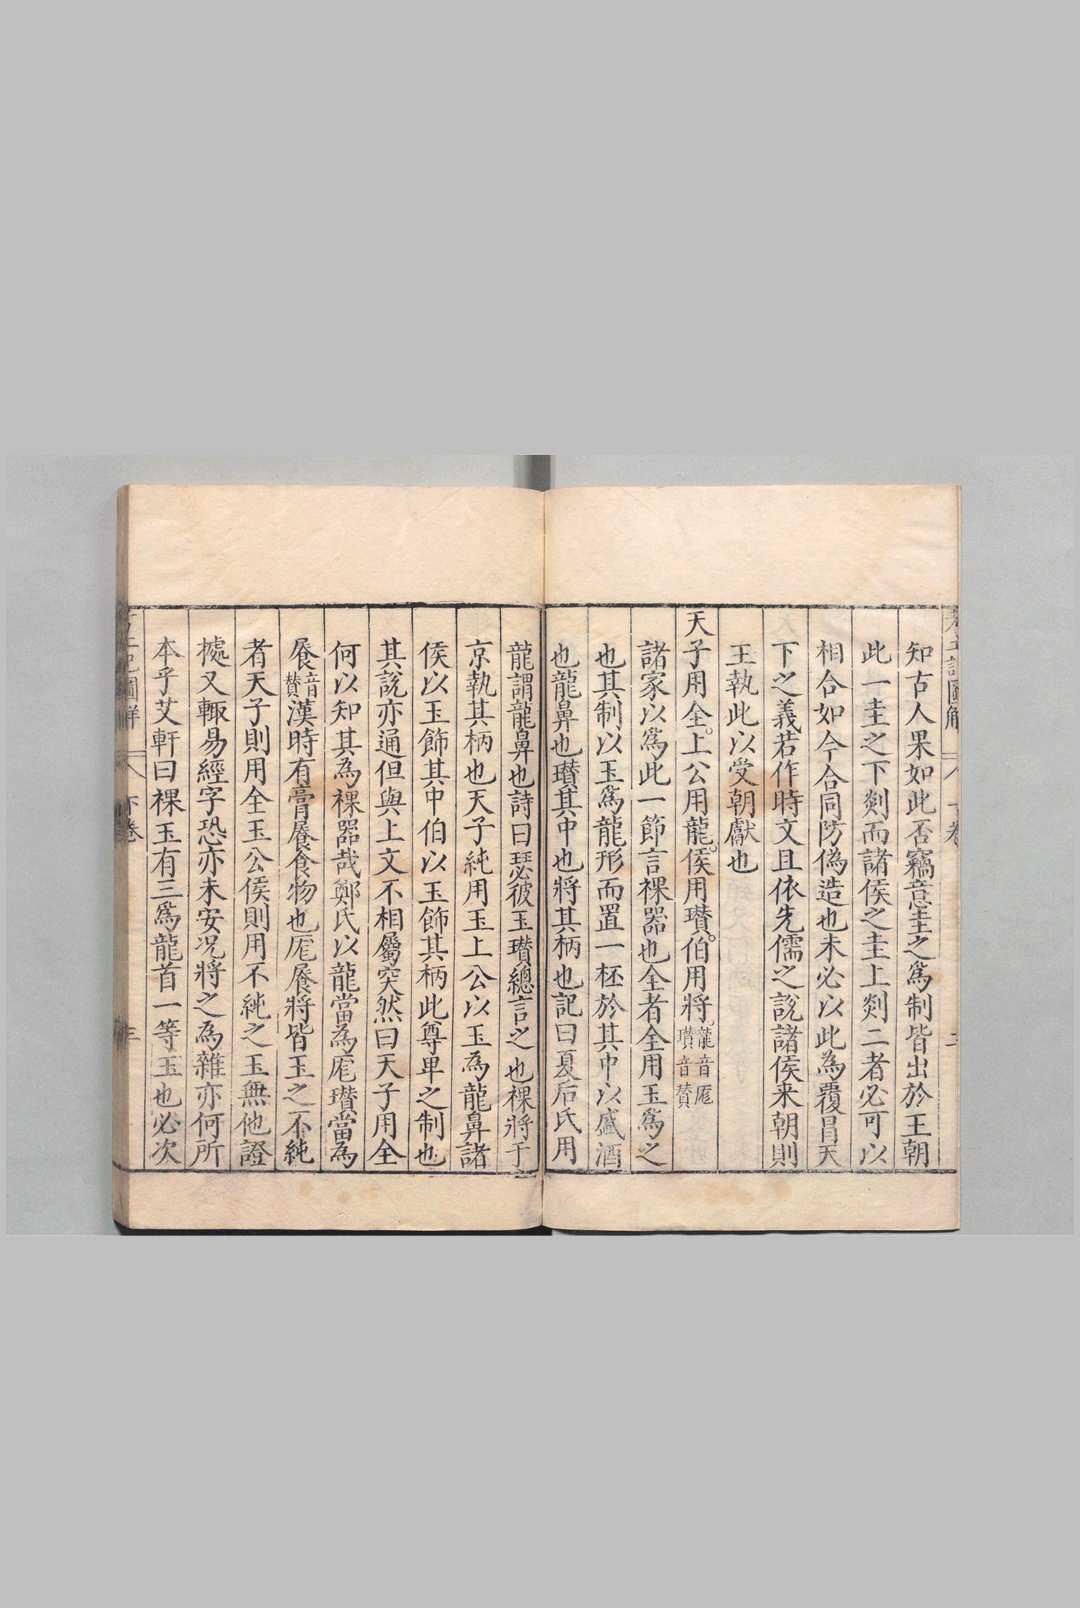 知古人果如此否竊意圭之爲制皆出於王朝
此一圭之下剡而諸侯之圭上剡二者必可以
相合如今合同防僞造也未必以此為覆冒天
下之義若作時文且依先儒之說諸侯来朝則
王執此以受朝獻也
天子用全。上公用龍。侯用瓚。伯用將。龍音厖瓚音贊
諸家以爲此一節言祼器也全者全用玉爲之
也其制以玉爲龍形而置一杯於其中以盛酒
也龍鼻也瓚其中也將其柄也記曰夏后氏用
龍謂龍鼻也詩曰瑟彼玉瓚總言之也祼將于
京執其柄也天子純用玉上公以玉為龍鼻諸
侯以玉飾其中伯以玉飾其柄此尊卑之制也
其說亦通但與上文不相屬突然曰天子用全
何以知其為祼器哉鄭氏以龍當為厖瓚當為
餍音贊漢時有膏餍食物也厖餍將皆玉之不純
者天子則用全玉公侯則用不純之玉無他證
據又輙易經字恐亦未安况將之為雜亦何所
本乎艾軒曰祼玉有三爲龍首一等玉也必次